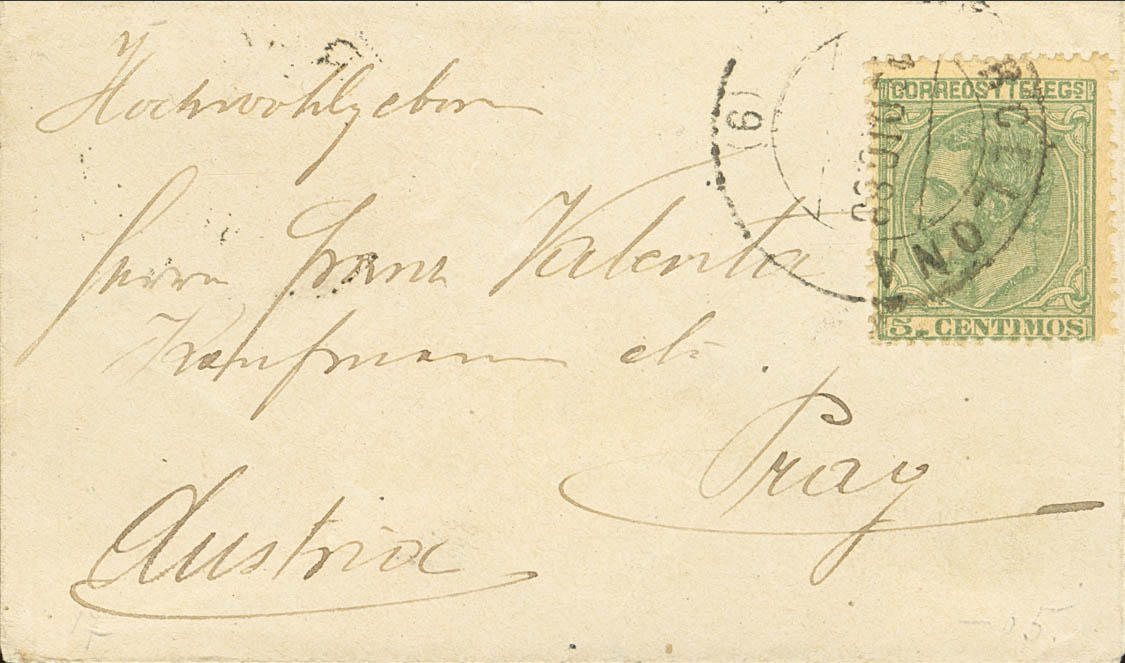 Hochwohlgeboren
Herrn Franz Valenta
Kaufmann etc.
Prag
Austria
CORREOS Y TELEGS.
5. CENTIMOS
BARCELONA
(6)